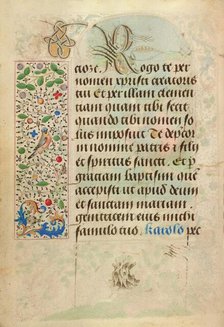 ctore. Rogo te per
nomen christi creatoris
tui Et per illam clemen
tiam quam tibi fecit
quando tibi nomen so
lus imposuit Te depcor
in nomine patris et filij
et spiritus sancti. Et p
gratiam baptismi quē
accepisti ut apud deum
et sanctam mariam
genitricem eius michi
famulo tuo. karolo pec